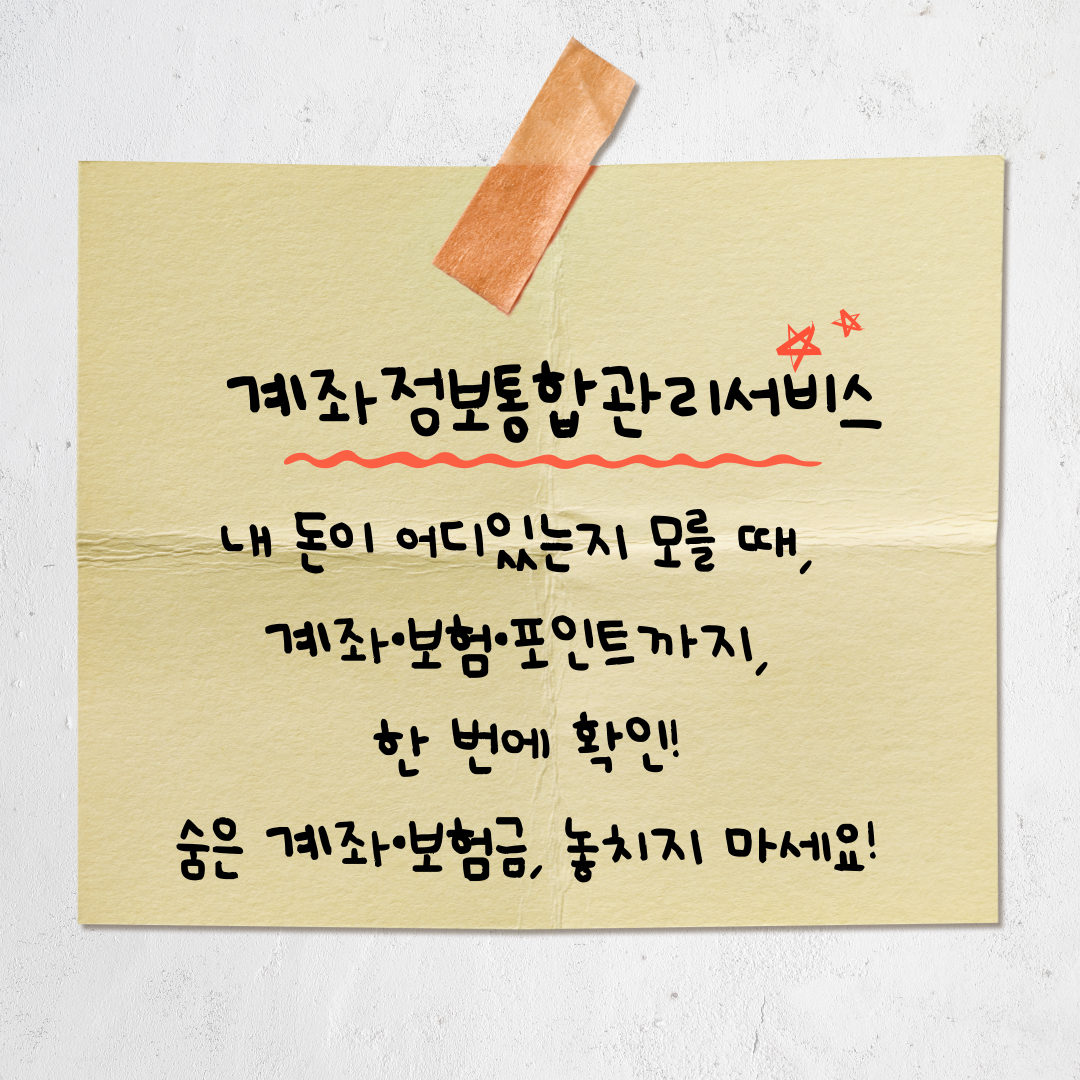 계좌정보통합관리서비스
내 돈이 어디있는지 모를 때,
계좌·보험·포인트까지,
한 번에 확인!
숨은 계좌·보험금, 놓치지 마세요!